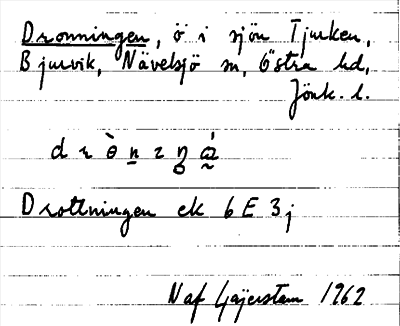 Dronningen, ö i sjön Tjurken,
Bjurvik, Nävelsjö sn, Östra hd,
Jönk. l.
Drottningen ek 6 E 3j
Naf Gajerstam 1962